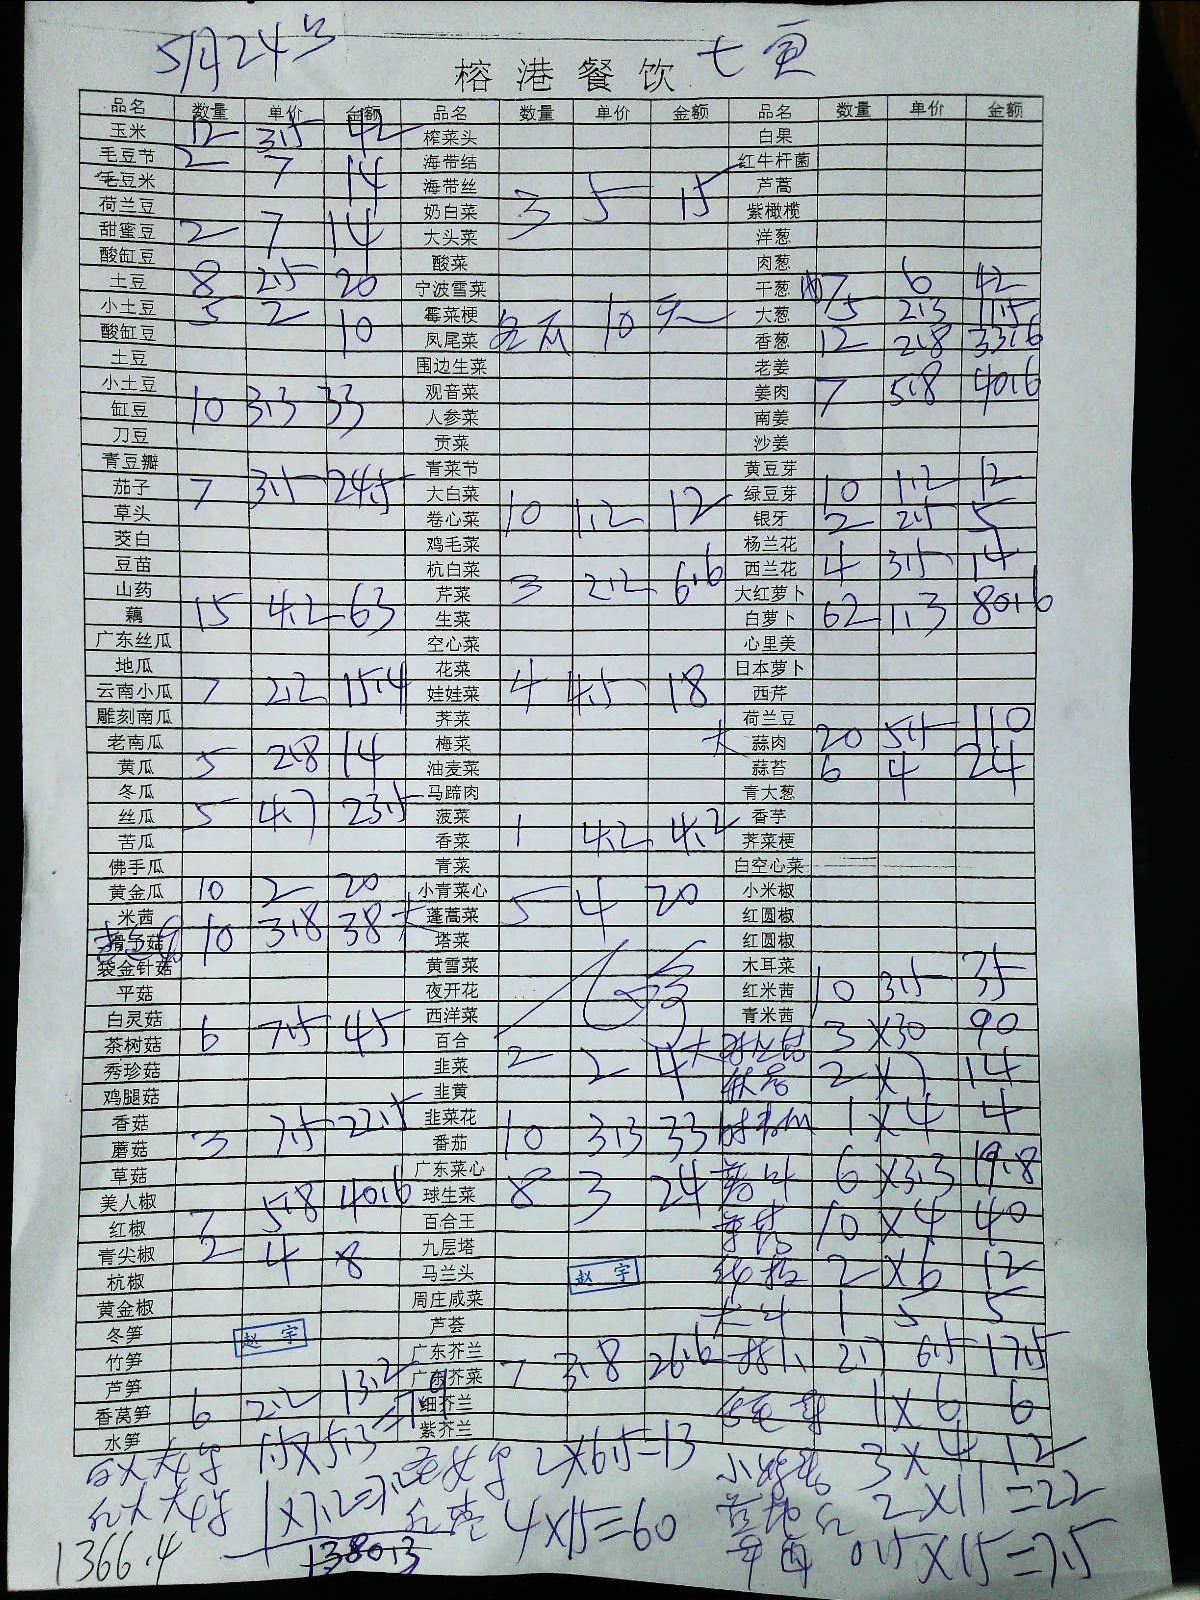 5月24号 七页
榕港餐饮
品名 数量 单价 金额 品名 数量 单价 金额 品名 数量 单价 金额
玉米 12 3.5 42 榨菜头 白果
毛豆节 2 7 14 海带结 红牛杆菌
毛豆米 海带丝 3 5 15 芦蒿
荷兰豆 奶白菜 紫橄榄
甜蜜豆 2 7 14 大头菜 洋葱
酸缸豆 酸菜 肉葱
土豆 8 2.5 20 宁波雪菜 干葱 7 6 42
小土豆 5 2 10 霉菜梗 大葱 5 2.3 11.5
酸缸豆 凤尾菜 10 香葱 12 2.8 33.6
土豆 围边生菜 老姜
小土豆 观音菜 姜肉 7 5.8 40.6
缸豆 10 3.3 33 人参菜 南姜
刀豆 贡菜 沙姜
青豆瓣 青菜节 黄豆芽
茄子 7 3.5 24.5 大白菜 绿豆芽 10 1.2 12
草头 卷心菜 10 1.2 12 银牙 2 2.5 5
茭白 鸡毛菜 杨兰花
豆苗 杭白菜 西兰花 4 3.5 14
山药 芹菜 3 2.2 6.6 大红萝卜
藕 15 4.2 63 生菜 白萝卜 62 1.3 80.6
广东丝瓜 空心菜 心里美
地瓜 花菜 日本萝卜
云南小瓜 7 2.2 15.4 娃娃菜 4 4.5 18 西芹
雕刻南瓜 荠菜 荷兰豆
老南瓜 梅菜 大 蒜肉 20 5.5 110
黄瓜 5 2.8 14 油麦菜 蒜苔 6 4 24
冬瓜 马蹄肉 青大葱
丝瓜 5 4.7 23.5 菠菜 香芋
苦瓜 香菜 1 4.2 4.2 荠菜梗
佛手瓜 青菜 白空心菜
黄金瓜 10 2 20 小青菜心 小米椒
米茜 大 蓬蒿菜 5 4 20 红圆椒
滑子菇 10 3.8 38 塔菜 红圆椒
袋金针菇 黄雪菜 木耳菜
平菇 夜开花 红米茜 10 3.5 35
白灵菇 西洋菜 青米茜
茶树菇 6 7.5 45 百合 3×30 90
秀珍菇 韭菜 2 2 4 2×7 14
鸡腿菇 韭黄 1×4 4
香菇 韭菜花
蘑菇 3 7.5 22.5 番茄 10 3.3 33
草菇 广东菜心 6×3.3 19.8
美人椒 球生菜 8 3 24
红椒 7 5.8 40.6 百合王 10×4 40
青尖椒 2 4 8 九层塔
杭椒 马兰头 赵宇 2×6 12
黄金椒 周庄咸菜 1 5 5
冬笋 赵宇 芦荟
竹笋 广东芥兰 2.7 6.5 17.5
芦笋 广东芥菜 7 3.8 26.6
香莴笋 6 2.2 13.2 细芥兰 1×6 6
水笋 紫芥兰
1.5×5.3=7.9 2×6.5=13 3×4 12
1×7.2=7.2 4×15=60 2×11=22
1366.4 1380.3 0.5×15=7.5